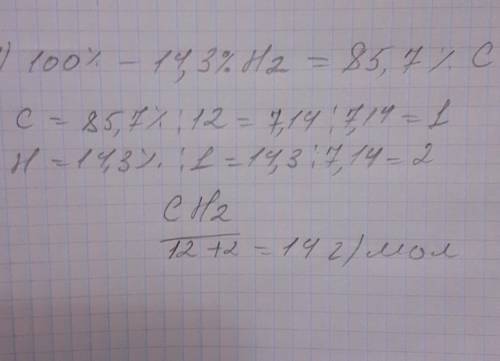 ) 100% - 14,3% H2 = 85,7% C
C = 85,7% : 12 = 7,14 : 7,14 = 1
H = 14,3% : 1 = 14,3 : 7,14 = 2
CH2
12+2 = 14 г/мол